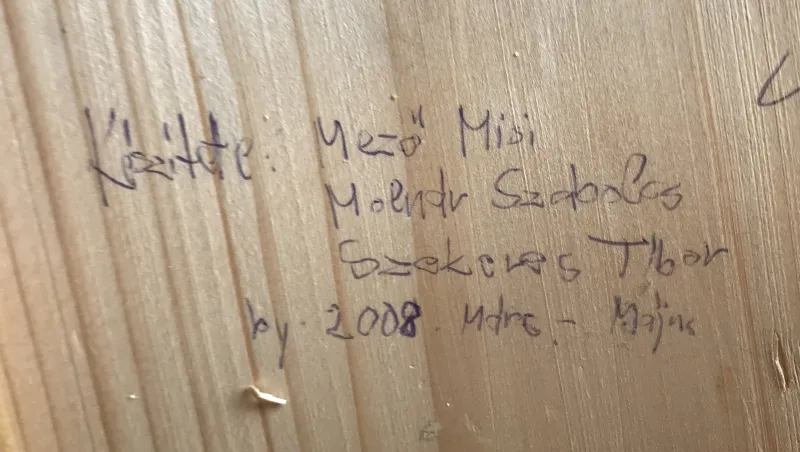 Készitette: Mező Misi
Molnár Szabolcs
Szekeres Tibor
by. 2008. Márc - Május